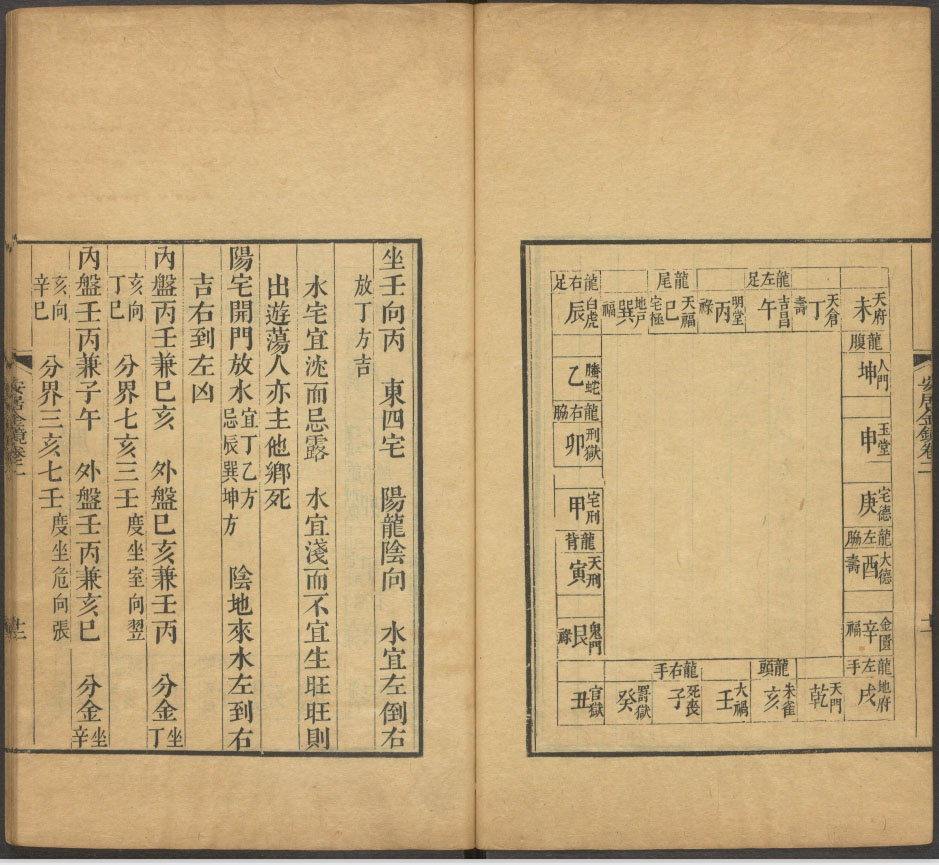 龍左足
龍尾
龍右足
天府未
天倉丁壽
吉昌午
明堂丙祿
天福巳
宅極
地戶巽福
白虎辰
龍腹
人門坤
玉堂申
宅德庚
龍左脇
大德酉壽
金匱辛福
龍左手
地府戌
騰蛇乙
龍右脇
刑獄卯
宅刑甲
龍背
天刑寅
鬼門艮祿
龍頭
龍右手
天門乾
朱雀亥
大禍壬
死喪子
罰獄癸
官獄丑
坐壬向丙 東四宅 陽龍陰向 水宜左倒右
放丁方吉
水宅宜沈而忌露 水宜淺而不宜生旺旺則
出遊蕩人亦主他鄉死
陽宅開門放水宜丁乙方忌辰巽坤方 陰地來水左到右
吉右到左凶
內盤丙壬兼巳亥 外盤巳亥兼壬丙 分金坐丁
亥向丁巳 分界七亥三壬度坐室向翌
內盤壬丙兼子午 外盤壬丙兼亥巳 分金坐辛
亥向辛巳 分界三亥七壬度坐危向張
安居金鏡卷二